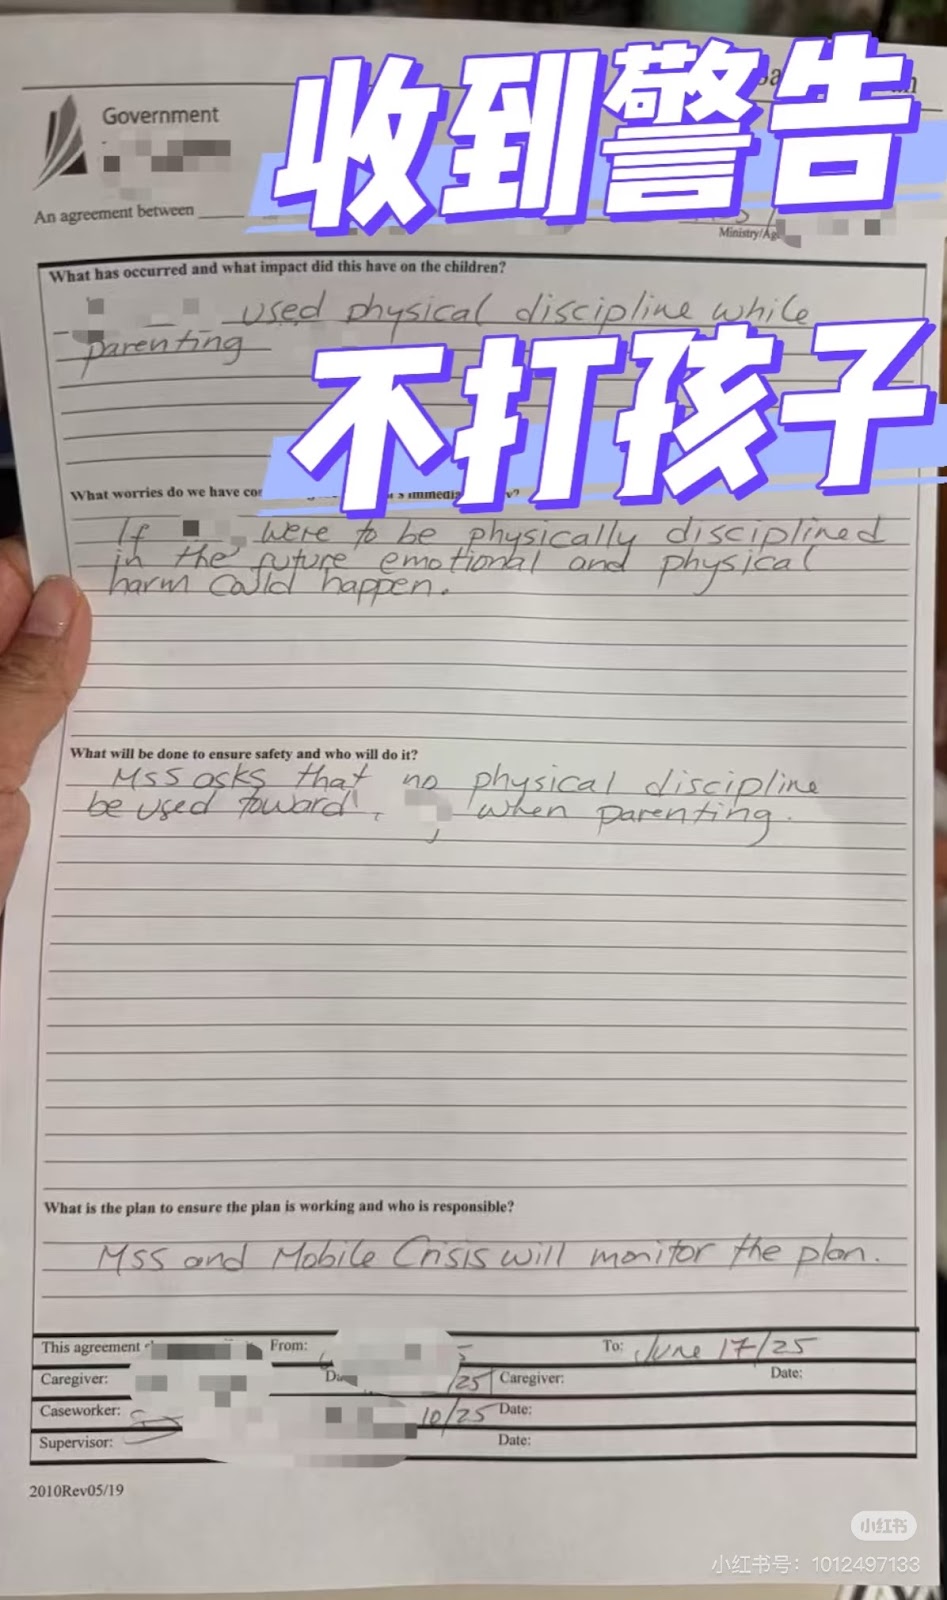 收到警告
Government
An agreement between
Ministry/Ag
What has occurred and what impact did this have on the children?
used physical discipline while
parenting
不打孩子
What worries do we have immedia
If were to be physically disciplined
in the future emotional and physical
harm could happen.
What will be done to ensure safety and who will do it?
MSS asks that no physical discipline
be used toward when parenting.
What is the plan to ensure the plan is working and who is responsible?
MSS and Mobile Crisis will monitor the plan.
This agreement From: To: June 17/25
Caregiver: /25 Caregiver: Date:
Caseworker: 10/25 Date:
Supervisor: Date:
2010Rev05/19
小红书
小红书号：1012497133